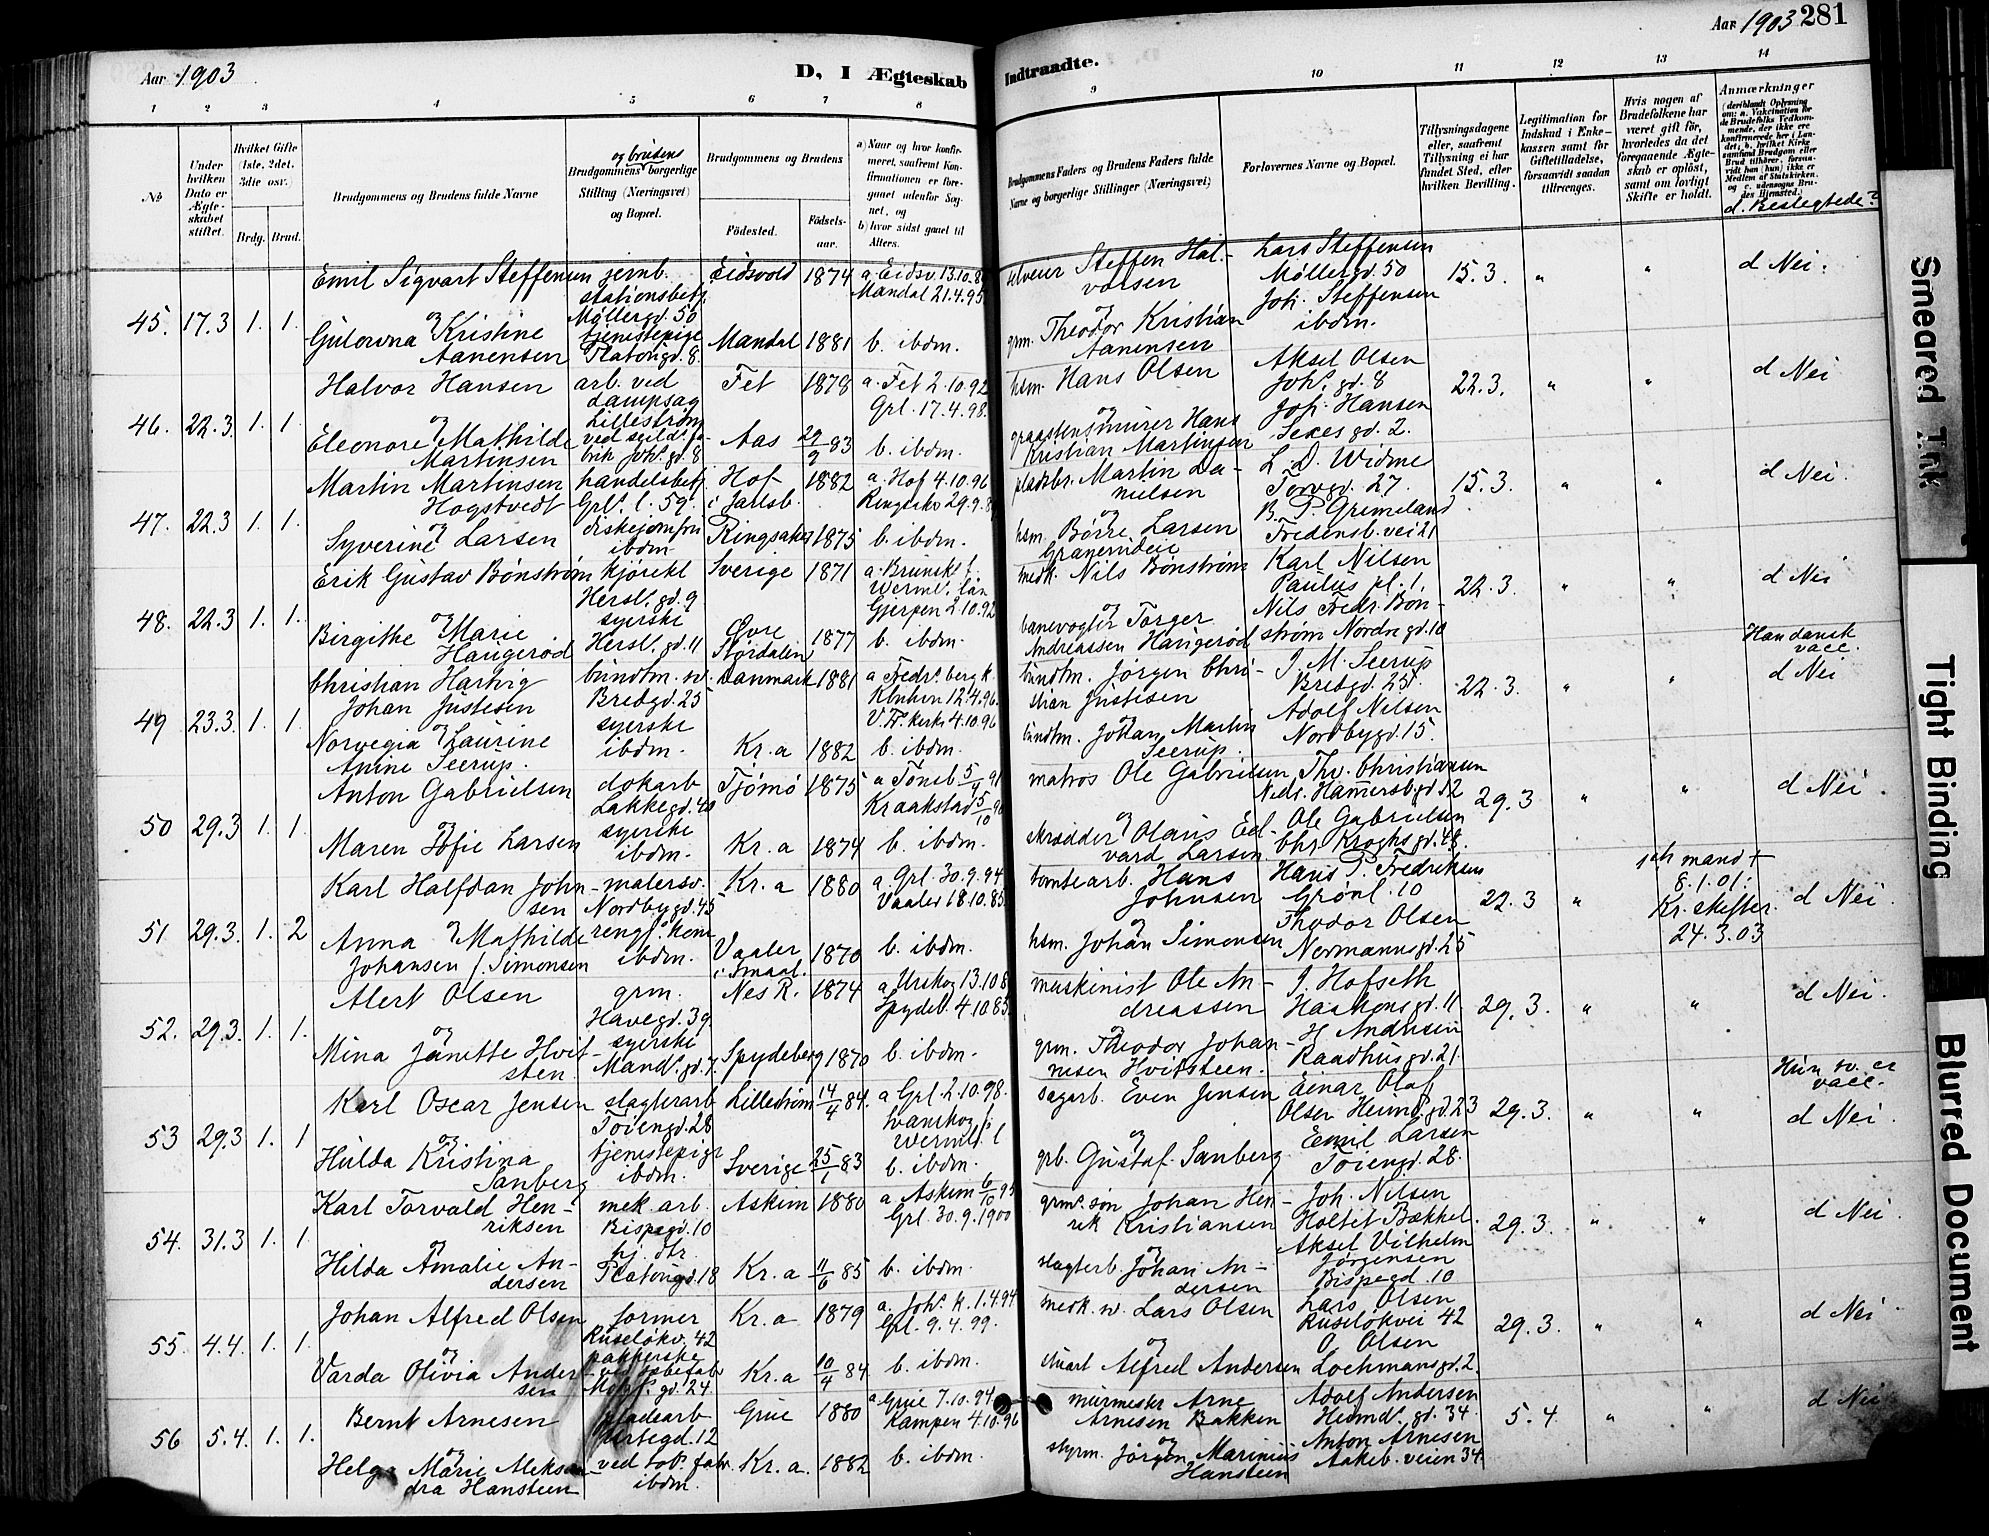 Aar 1903
D, I Ægteskab
Indtraadte.
Aar 1903 281
1 2 3 4 5 6 7 8 9 10 11 12 13 14
No
Under hvilken Dato er Ægteskabet stiftet.
Hvilket Gifte (1ste, 2det, 3die osv.)
Brdg. Brud.
Brudgommens og Brudens fulde Navne
Brudgommens og brudens borgerlige Stilling (Næringsvei) og Bopæl.
Brudgommens og Brudens
Födested. Födselsaar.
a) Naar og hvor konfirmeret, saafremt Konfirmationen er foregaaet udenfor Sognet, og
b) hvor sidst gaaet til Alters.
Brudgommens Faders og Brudens Faders fulde Navne og borgerlige Stillinger (Næringsvei)
Forlovernes Navne og Bopæl.
Tillysningsdagene eller, saafremt Tillysning ei har fundet Sted, efter hvilken Bevilling.
Legitimation for Indskud i Enkekassen samt for Giftetilladelse, forsaavidt saadan tiltrænges.
Hvis nogen af Brudefolkene har været gift för, hvorledes da det foregaaende Ægteskab er oplöst, samt om lovligt Skifte er holdt.
Anmærkninger
d. Beslegtede?
45. 17.3 1. 1.
Emil Sigvart Steffensen
og
Gulowna Kristine
Aanensen
jernb.
stationsbetj.
Möllergd. 50
tjenestepige
Platousgd. 8.
Eidsvold 1874
Mandal 1881
a. Eidsv. 13.10.
Mandal 21.4.95
b. ibdm.
selveier Steffen Halvorsen
og
grm. Theodor Kristian
Aanensen
Lars Steffensen
Möllergd. 50
Joh. Steffensen
ibdm.
15.3. " " d Nei.
46. 22.3. 1. 1
Halvor Hansen
og
Eleonore Mathilde
Martinsen
arb. ved
dampsag
Lilleström
Fet 1878
Aas 29/9 83
a. Fet 2.10.92
Grl. 17.4.98.
b. ibdm.
hsm. Hans Olsen
og
graastensmurer Hans
Kristian Martinsen
Aksel Olsen
Johs. gd. 8
Joh. Hansen
Sexes gd. 2.
22.3. " " d Nei
47. 22.3 1. 1.
Martin Martinsen
Hogstvedt
og
Syverine Larsen
handelsbetj.
Grl. l. 59.
diskejomfru
ibdm
Hof i Jarlsb. 1882
Ringsaker 1875
a. Hof 4.10.96
Ringsaker 29.9.
b. ibdm.
pladsbr. Martin Danielsen
og
hsm. Börre Larsen
L. D. Widme
Torvgd. 27.
B. P. Grimeland
Fredensb. vei 21
15.3. " " d Nei.
48. 22.3 1. 1.
Erik Gustav Bönström
og
Birgithe Marie
Haugeröd
kjörekl
Hersl. gd. 9
syerske
Hersl. gd. 11
Sverige 1871
Övre Stördalen 1877
a. Brunsk. f.
Werml. län
Gjerpen 2.10.92
b. ibdm.
medk. Nils Bönström
og
banevogter Torger
Andreassen Haugeröd
Karl Nilsen
Paulus pl. 1.
Nils Fredr. Bönström Nordregd. 10
22.3. " " d Nei
49 23.3. 1. 1.
Christian Hartvig
Johan Justesen
og
Norvegia Laurine
Anine Seerup.
buntm. sv.
Bredgd. 25
syerske
ibdm.
Danmark 1881
Kr.a 1882
a Fredr. berg k.
Kbnhvn 12.4.96.
V. Fr. kirke 4.10.96
b. ibdm.
buntm. Jörgen Christian Justesen
og
buntm. Johan Martin
Seerup.
J. M. Seerup
Bredgd. 25.
Adolf Nilsen
Nordbygd. 15.
22.3. " "
Han dansk
vacc.
d Nei
50 29.3 1. 1.
Anton Gabrielsen
og
Maren Sofie Larsen
dokarb
Lakkegd. 40
syerske
ibdm.
Tjömö 1875
Kr.a 1874
a Tönsb 5/4 91
Kraakstad 5/10 90
b. ibdm.
matros Ole Gabrielsen
og
skrædder Olaus Edvard Larsen
Thv. Christiansen
Nedr. Hamersb gd 12
Ole Gabrielsen
Chr Kroghs gd. 48.
29.3 " " d Nei.
51 29.3. 1. 2
Karl Halfdan Johnsen
og
Anna Mathilde
Johansen f. Simonsen
malersv.
Nordbygd. 45
rengj. kone
ibdm.
Kr.a 1880
Vaaler i Smaal. 1870
a. Grl. 30.9.94
Vaaler 18.10.85
b. ibdm.
tomtearb. Hans
Johnsen
og
hsm. Johan Simonsen
Hans P. Fredriksen
Grönl. 10
Thodor Olsen
Normannsgd. 25
22.3 "
1ste mand †
8.1.01:
Kr. skifter.
24.3.03
d Nei.
52. 29.3. 1. 1.
Alert Olsen
og
Mina Janette Hvitsten
grm.
Havegd. 39
syerske
Mands. gd. 7.
Nes R. 1874
Spydeberg 1870
a Urskog 13.10.8
Spydeb. 4.10.85
b. ibdm.
maskinist Ole Andreassen
og
grm. Theodor Johannesen Hvitsteen.
J. Hofseth
Haakonsgd. 11
H Andersen
Raadhusgd. 21.
29.3. " " d Nei.
53 29.3 1. 1
Karl Oscar Jensen
og
Hulda Kristina
Sanberg
slagterarb.
Töiengd. 28
tjenestepige
ibdm.
Lilleström 14/4 84.
Sverige 25/1 83
a Grl. 2.10.98.
Svanskog f.
Werml. l
b. ibdm.
sagarb. Even Jensen
og
grb. Gustaf Sanberg
Einar Olaf
Olsen Heimd. gd. 23
Emil Larsen
Töiengd. 28.
29.3. " "
Hun sv. er
vacc.
d Nei.
54. 31.3 1. 1
Karl Torvald Henriksen
og
Hilda Amalie Andersen
mek. arb.
Bispegd. 10
hj. dtr.
Platousgd. 18
Askim 1880
Kr.a 11/6 85
a Askim 6/10 95
Grl. 30.9.1900
b. ibdm.
grms. sön Johan Henrik Kristiansen
og
slagterb. Johan Andersen
Joh. Nilsen
Holtet Bækkel.
Aksel Vilhelm
Jörgensen
Bispegd. 10
29.3. " " d Nei.
55. 4.4. 1. 1.
Johan Alfred Olsen
og
Varda Olivia Andersen
former
Ruselökv. 42
pakkerske
Kr.a 1879
Kr.a 10/4 84
a. Johs. k. 1.4.94
Grl. 9.4.99.
b. ibdm.
medk. sv. Lars Olsen
og
stuart Alfred Andersen
Lars Olsen
Ruselökvei 42
O Olsen
Lochmansgd. 2.
29.3. " " d Nei
56 5.4. 1. 1.
Bernt Arnesen
og
Helga Marie Aleksandra Hansteen
Urtegd. 12
ved tob. fabr.
ibdm.
Grue 1880
Kr.a. 1882
a Grue 7.10.94
Kampen 4.10.96
b. ibdm.
murmester Arne
Arnesen Bakken
og
styrm. Jörgen Marinius
Hansteen
Adolf Andersen
Heimd. gd. 34.
Anton Arnesen
Aakeb. veien 34
5.4. " " d Nei
Smeared Ink
Tight Binding
Blurred Document